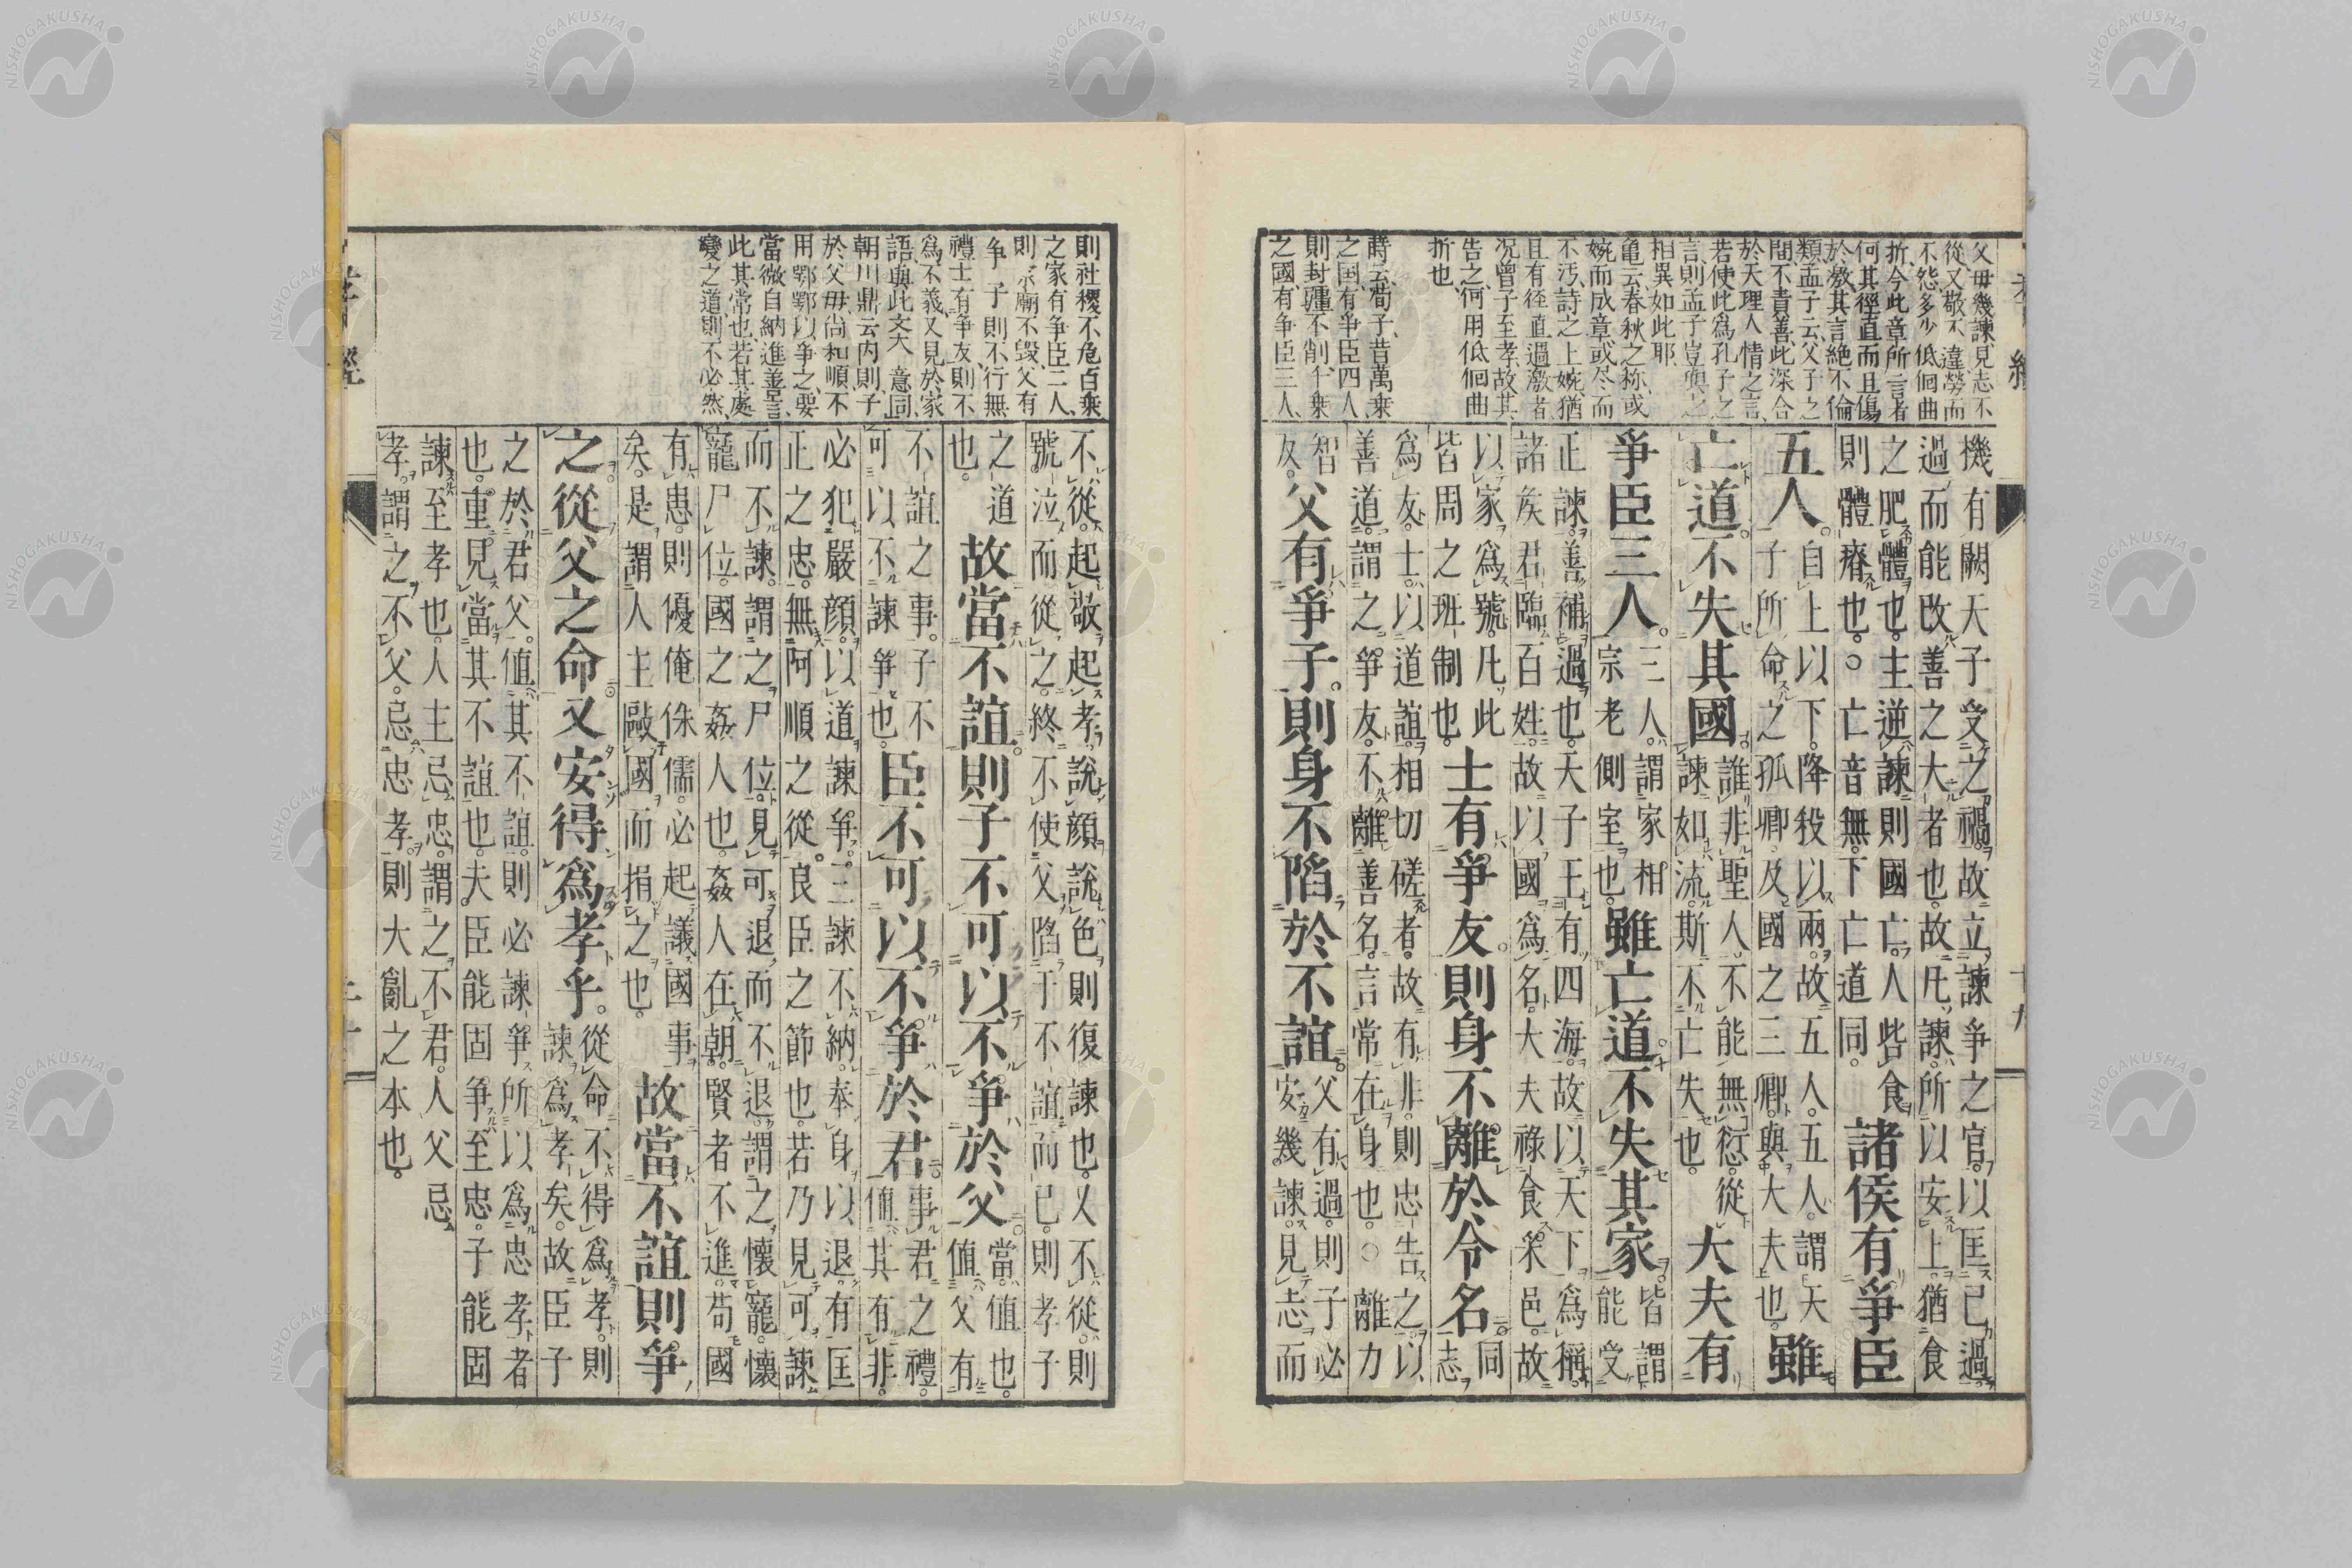 父母幾諫見志不
從又敬不違勞而
不怨多少低佪曲
折今此章所言者
何其徑直而且傷
於激其言絶不倫
類孟子云父子之
間不責善此深合
於天理人情之言
若使此爲孔子之
言則孟子豈與之
相異如此耶
亀云春秋之称或
婉而成章或尽而
不汚詩之上婉猶
且有徑直過激者
况曾子至孝故其
告之何用低佪曲
折也
蒔云荀子昔萬乘
之国有爭臣四人
則封疆不削千乘
之國有爭臣三人
機有闕天子受之禍故立諫爭之官以匡己過
過而能改善之大者也故凡諫所以安上猶食
之肥體也主逆諫則國亡人呰食
則體瘠也○亡音無下亡道同
諸侯有爭臣
五人
自上以下降殺以兩故五人五人謂天
子所命之孤卿及國之三卿與大夫也
雖
亡道不失其國
誰非聖人不能無愆從
諫如流斯不亡失也
大夫有
爭臣三人
三人謂家相
宗老側室也
雖亡道不失其家
皆謂
能受
正諫善補過也天子王有四海故以天下爲稱
諸矦君臨百姓故以國爲名大夫祿食采邑故
以家爲號凡此
皆周之班制也
士有爭友則身不離於令名
同
志
爲友士以道誼相切磋者故有非則忠告之以
善道謂之爭友不離善名言常在身也○離力
智
反
父有爭子則身不陷於不誼
父有過則子必
安幾諫見志而
十九
則社稷不危百乘
之家有爭臣二人
則宗廟不毀父有
爭子則不行無
禮士有爭友則不
爲不義又見於家
語與此文大意同
朝川鼎云内則子
於父母尚和順不
用鄂鄂以爭之要
當微自納進善言
此其常也若其處
變之道則不必然
不從起敬起孝說顔說色則復諫也又不從則
號泣而從之終不使父陷于不誼而已則孝子
之道
也
故當不誼則子不可以不爭於父
當値也
値父有
不誼之事子不
可以不諫爭也
臣不可以不爭於君
事君之禮
値其有非
必犯嚴顔以道諫爭三諫不納奉身以退有匡
正之忠無阿順之從良臣之節也若乃見可諫
而不諫謂之尸位見可退而不退謂之懷寵懷
寵尸位國之姦人也姦人在朝賢者不進苟國
有患則優俺侏儒必起議國事
矣是謂人主敺國而捐之也
故當不誼則爭
之從父之命又安得爲孝乎
從命不得爲孝則
諫爲孝矣故臣子
之於君父値其不誼則必諫爭所以爲忠孝者
也重見當其不誼也夫臣能固爭至忠子能固
諫至孝也人主忌忠謂之不君人父忌
孝謂之不父忌忠孝則大亂之本也
二十
NISHOGAKUSHA